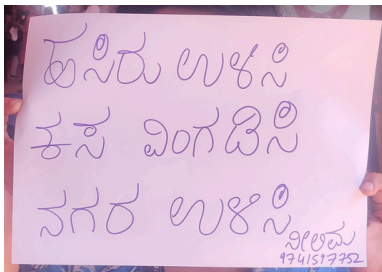 ಹಸಿರು ಉಳಿಸಿ
ಕಸ ವಿಂಗಡಿಸಿ
ನಗರ ಉಳಿಸಿ
ನೀಲಿಮ
9741517752